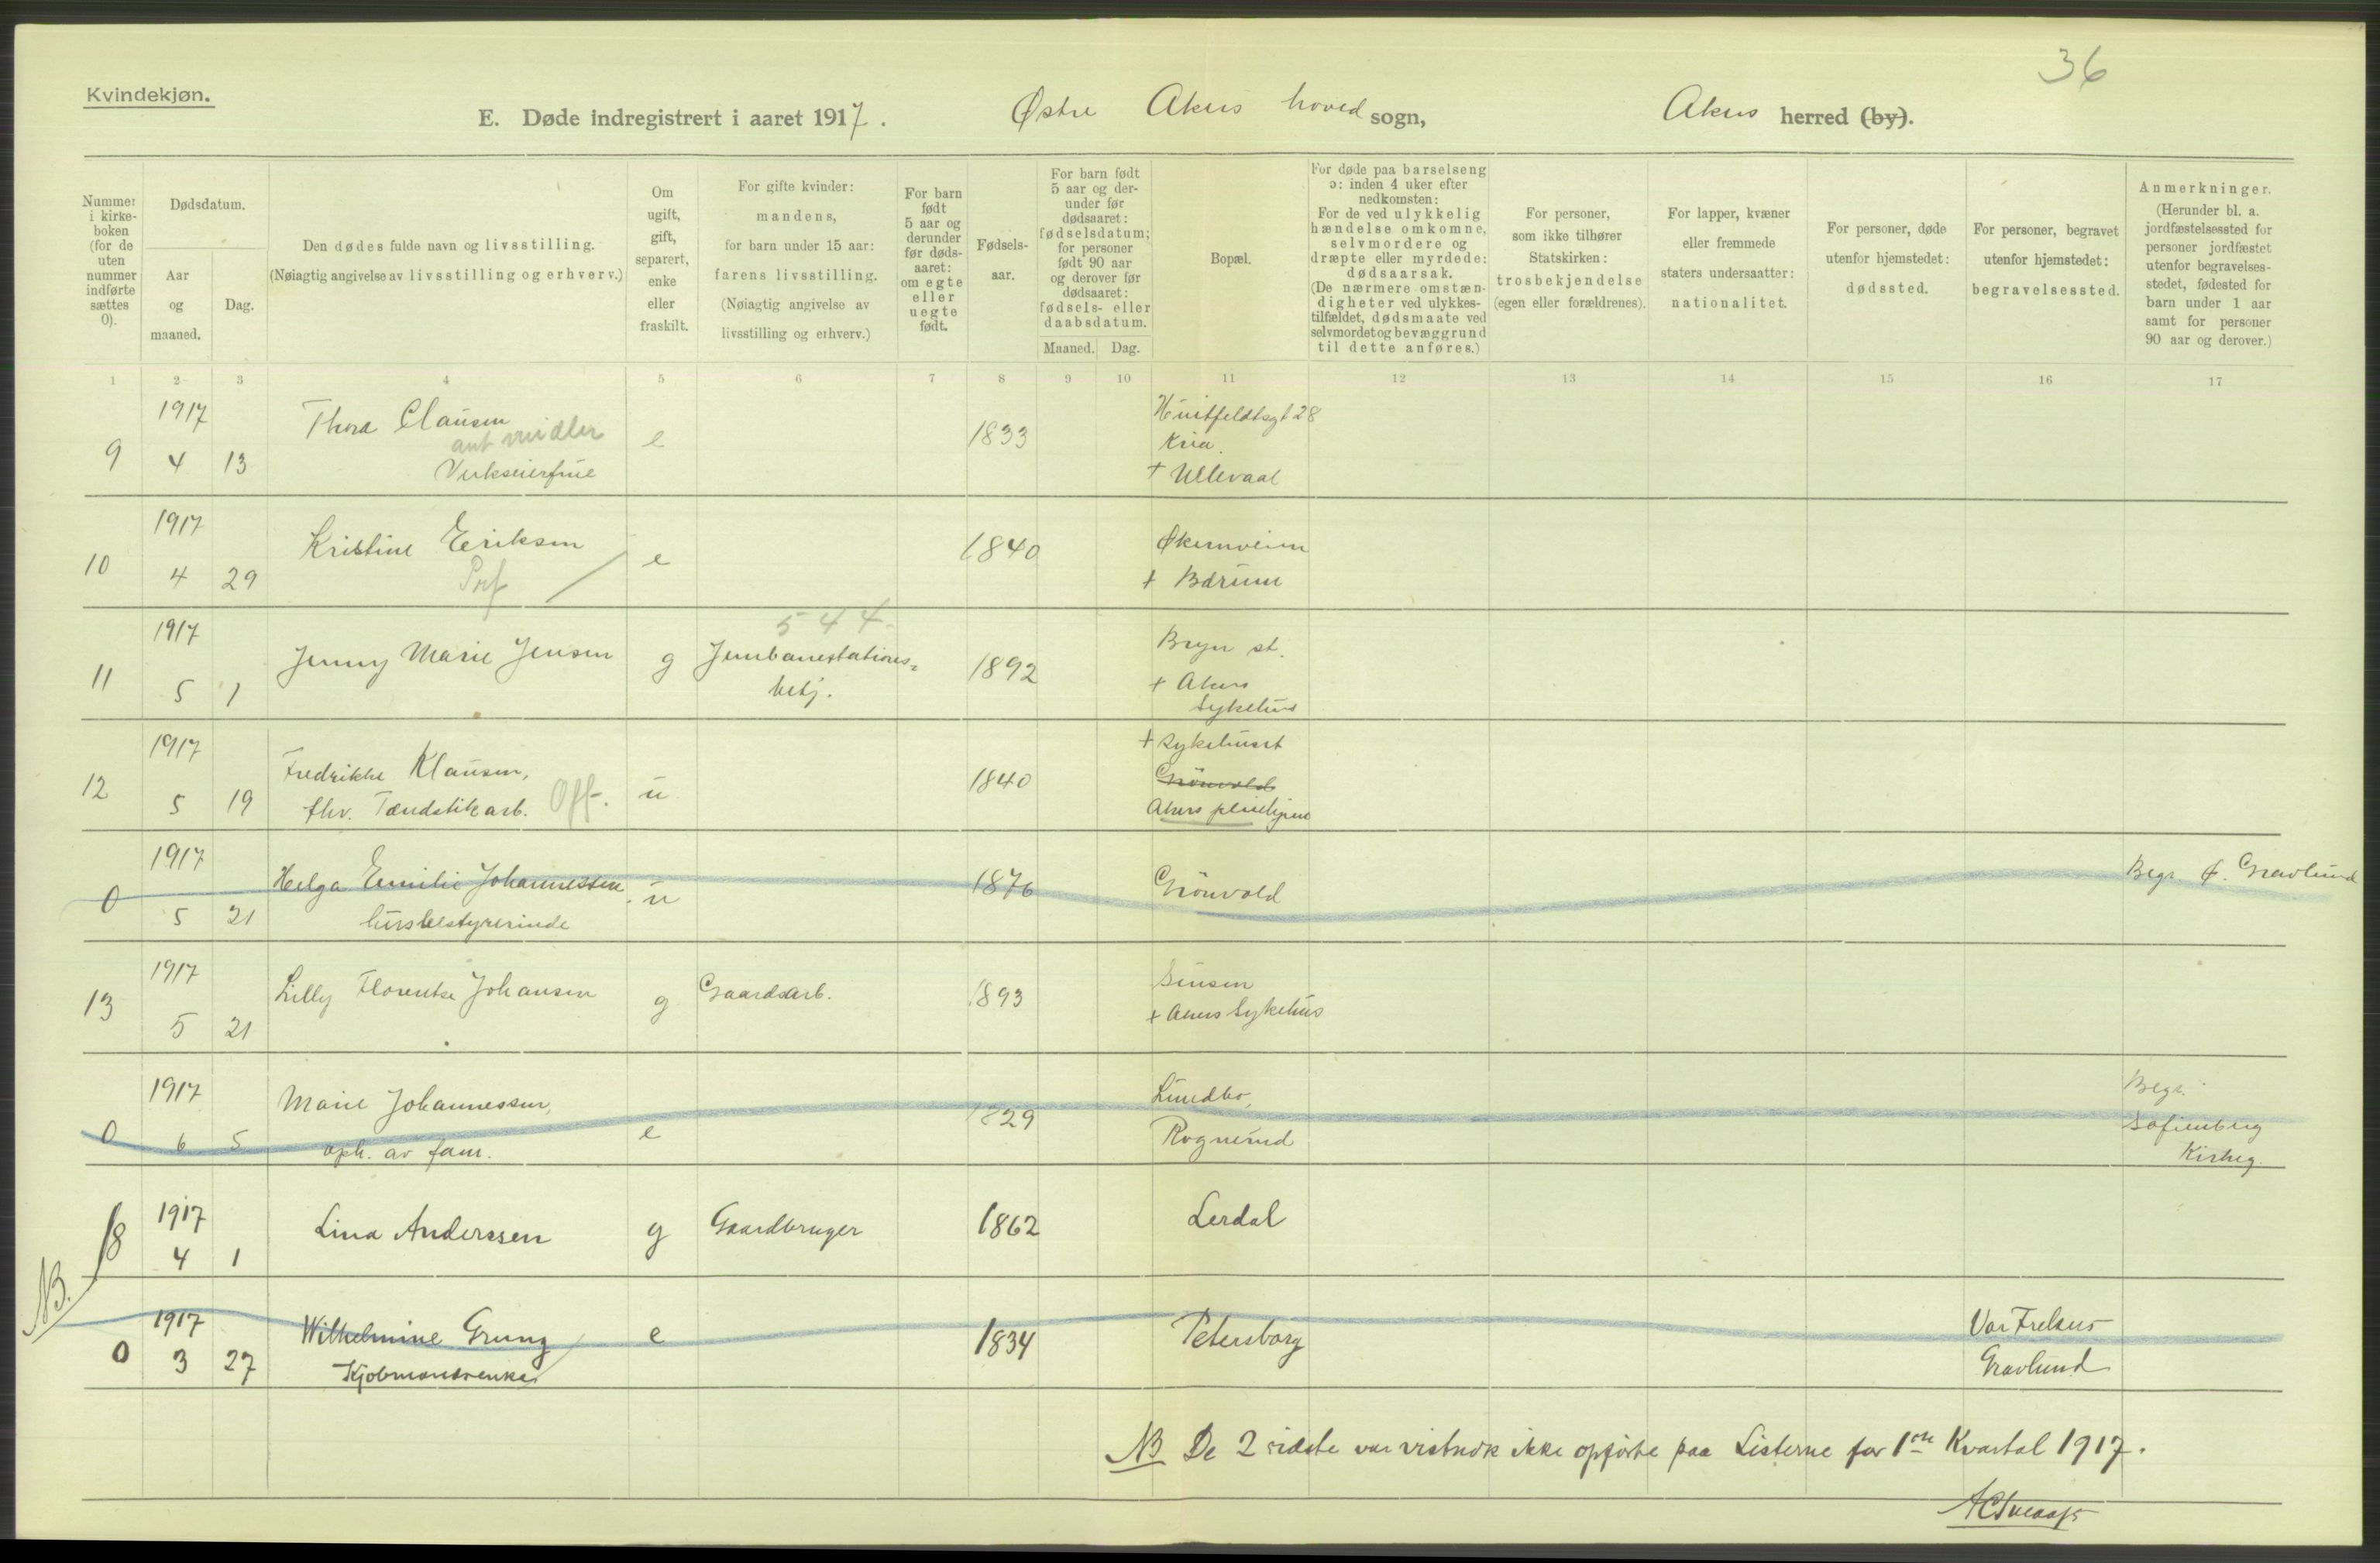 36
Kvindekjøn.
E. Døde indregistrert i aaret 1917. Østre Akers hoved sogn, Akers herred (by).
Nummer i kirke-boken (for de uten nummer indførte sættes 0).
Dødsdatum.
Aar og maaned.
Dag.
Den dødes fulde navn og livsstilling.
(Nøiagtig angivelse av livsstilling og erhverv.)
Om ugift, gift, separert, enke eller fraskilt.
For gifte kvinder:
mandens,
for barn under 15 aar:
farens livsstilling.
(Nøiagtig angivelse av
livsstilling og erhverv.)
For barn født 5 aar og derunder før døds-aaret: om egte eller uegte født.
Fødsels-aar.
For barn født 5 aar og der-under før dødsaaret: fødselsdatum; for personer født 90 aar og derover før dødsaaret: fødsels- eller daabsdatum.
Maaned. Dag.
Bopæl.
For døde paa barselseng
ɔ: inden 4 uker efter
nedkomsten:
For de ved ulykkelig
hændelse omkomne,
selvmordere og
dræpte eller myrdede:
dødsaarsak.
(De nærmere omstæn-
digheter ved ulykkes-
tilfældet, dødsmaate ved
selvmordet og bevæggrund
til dette anføres.)
For personer,
som ikke tilhører
Statskirken:
trosbekjendelse
(egen eller forældrenes).
For lapper, kvæner
eller fremmede
staters undersaatter:
nationalitet.
For personer, døde
utenfor hjemstedet:
dødssted.
For personer, begravet
utenfor hjemstedet:
begravelsessted.
Anmerkninger.
(Herunder bl. a.
jordfæstelsessted for
personer jordfæstet
utenfor begravelses-
stedet, fødested for
barn under 1 aar
samt for personer
90 aar og derover.)
1 2 3 4 5 6 7 8 9 10 11 12 13 14 15 16 17
9 1917 4 13 Thora Clausen
Verkseierfrue
e 1833 Huitfeldtsgt 28
Kria.
+ Ullevaal
10 1917 4 29 Kristine Eriksen
e 1840 Økernveien
+ Bærum
544
11 1917 5 1 Jenny Marie Jensen g Jernbanestations-
betj.
1892 Bryn st.
+ Akers
Sykehus
12 1917 5 19 Fredrikke Klausen,
fhv. Tændstikarb. Off.
u 1840 + Sykehuset
Grönvold
Akers pleiehjem
0 1917 5 21 Helga Emilie Johannessen
husbestyrerinde
u 1876 Grönvold Begr. Ø. Gravlund
13 1917 5 21 Lilly Florentse Johansen g Gaardsarb. 1893 Sinsen
+ Akers Sykehus
0 1917 6 5 Marie Johannessen,
oph. av fam.
e 1829 Lundbo,
Rognerud
Begr.
Sofienberg
Kirkeg.
NB.
18 1917 4 1 Lina Anderssen g Gaardbruger 1862 Lerdal
0 1917 3 27 Wilhelmine Grung
Kjöbmandsenke
e 1834 Petersborg Vor Frelsers
Gravlund
NB De 2 sidste var vistnok ikke opførte paa Listerne for 1ste Kvartal 1917.